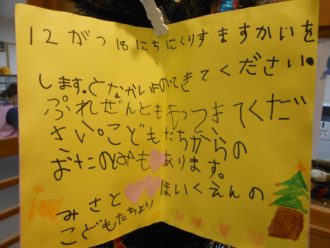 12がつ18にちにくりすますかいを
します。となかいよのてきてください。
ぷれぜんとももってきてくだ
さい。こどもたちからの
おたのしみもあります。
みさとほいくえんの
こどもたちより